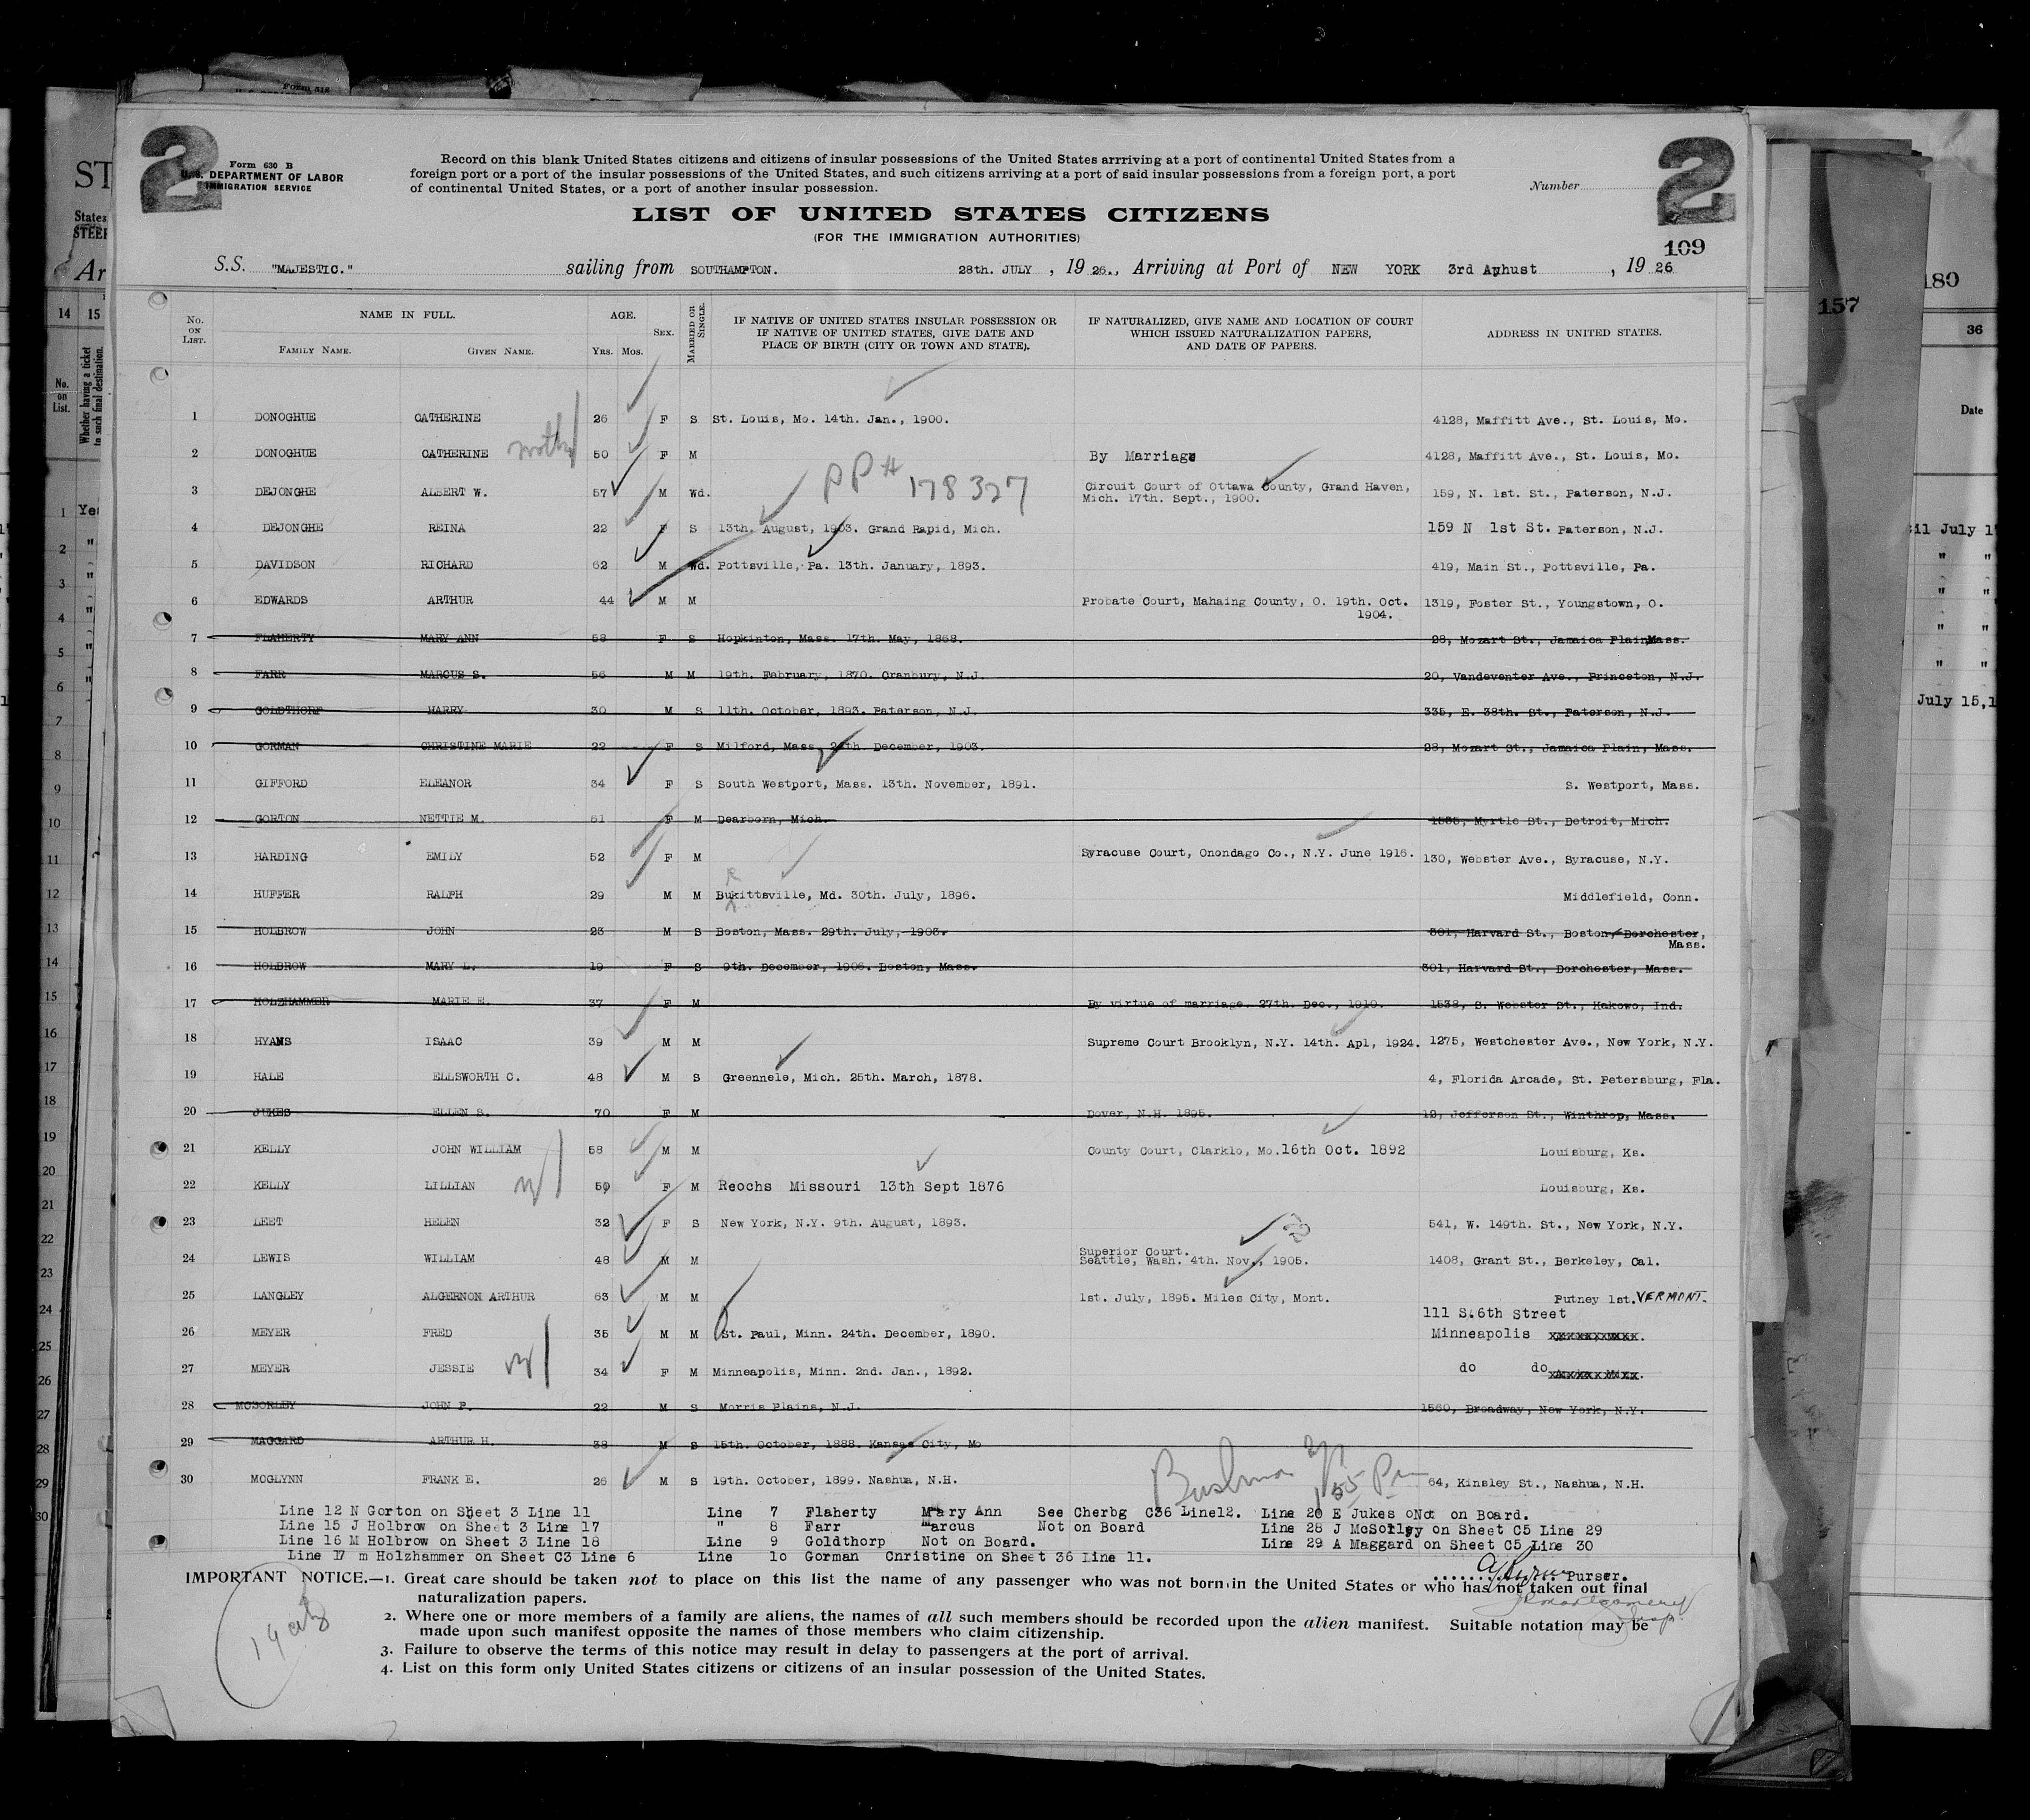 2
2
Form 630 B
U.S. DEPARTMENT OF LABOR
IMMIGRATION SERVICE
Record on this blank United States citizens and citizens of insular possessions of the United States arrriving at a port of continental United States from a
foreign port or a port of the insular possessions of the United States, and such citizens arriving at a port of said insular possessions from a foreign port, a port
of continental United States, or a port of another insular possession.
Number
LIST OF UNITED STATES CITIZENS
(FOR THE IMMIGRATION AUTHORITIES)
109
S.S. "MAJESTIC." sailing from SOUTHAMPTON. 28th. JULY , 19 26., Arriving at Port of NEW YORK 3rd Aughust , 19 26
No. ON LIST. NAME IN FULL. FAMILY NAME. GIVEN NAME. AGE. YRS. MOS. SEX. MARRIED OR SINGLE. IF NATIVE OF UNITED STATES INSULAR POSSESSION OR IF NATIVE OF UNITED STATES, GIVE DATE AND PLACE OF BIRTH (CITY OR TOWN AND STATE). IF NATURALIZED, GIVE NAME AND LOCATION OF COURT WHICH ISSUED NATURALIZATION PAPERS, AND DATE OF PAPERS. ADDRESS IN UNITED STATES.
1 DONOGHUE CATHERINE 26 F S St. Louis, Mo. 14th. Jan., 1900. 4128, Maffitt Ave., St. Louis, Mo.
2 DONOGHUE CATHERINE mother 50 F M By Marriage 4128, Maffitt Ave., St. Louis, Mo.
PP# 178327
3 DEJONGHE ALBERT W. 57 M Wd. Circuit Court of Ottawa County, Grand Haven, Mich. 17th. Sept., 1900. 159, N. 1st. St., Paterson, N.J.
4 DEJONGHE REINA 22 F S 13th. August, 1903. Grand Rapid, Mich. 159 N 1st St. Paterson, N.J.
5 DAVIDSON RICHARD 62 M Wd. Pottsville, Pa. 13th. January, 1893. 419, Main St., Pottsville, Pa.
6 EDWARDS ARTHUR 44 M M Probate Court, Mahaing County, O. 19th. Oct. 1904. 1319, Foster St., Youngstown, O.
7 FLAHERTY MARY ANN 58 F S Hopkinton, Mass. 17th. May, 1868. 28, Mozart St., Jamaica Plain, Mass.
8 FARR MARCUS S. 56 M M 19th. February, 1870. Cranbury, N.J. 20, Vandeventer Ave., Princeton, N.J.
9 GOLDTHORP HARRY 30 M S 11th. October, 1893. Paterson, N.J. 335, E. 38th. St., Paterson, N.J.
10 GORMAN CHRISTINE MARIE 22 F S Milford, Mass. 24th December, 1903. 28, Mozart St., Jamaica Plain, Mass.
11 GIFFORD ELEANOR 34 F S South Westport, Mass. 13th. November, 1891. S. Westport, Mass.
12 GORTON NETTIE M. 61 F M Dearborn, Mich. 1535, Myrtle St., Detroit, Mich.
13 HARDING EMILY 52 F M Syracuse Court, Onondago Co., N.Y. June 1916. 130, Webster Ave., Syracuse, N.Y.
14 HUFFER RALPH 29 M M Bukittsville, Md. 30th. July, 1896. Middlefield, Conn.
15 HOLBROW JOHN 23 M S Boston, Mass. 29th. July, 1903. 301, Harvard St., Boston, Dorchester, Mass.
16 HOLBROW MARY L. 19 F S 9th. December, 1906. Boston, Mass. 301, Harvard St., Dorchester, Mass.
17 HOLZHAMMER MARIE E. 37 F M By virtue of marriage. 27th. Dec., 1910. 1538, S. Webster St., Kakowo, Ind.
18 HYAMS ISAAC 39 M M Supreme Court Brooklyn, N.Y. 14th. Apl, 1924. 1275, Westchester Ave., New York, N.Y.
19 HALE ELLSWORTH C. 48 M S Greennele, Mich. 25th. March, 1878. 4, Florida Arcade, St. Petersburg, Fla.
20 JUKES ELLEN S. 70 F M Dover, N.H. 1895. 12, Jefferson St., Winthrop, Mass.
21 KELLY JOHN WILLIAM 58 M M County Court, Clarklo, Mo. 16th Oct. 1892 Louisburg, Ks.
22 KELLY LILLIAN 50 F M Reochs Missouri 13th Sept 1876 Louisburg, Ks.
23 LEET HELEN 32 F S New York, N.Y. 9th. August, 1893. 541, W. 149th. St., New York, N.Y.
24 LEWIS WILLIAM 48 M M Superior Court. Seattle, Wash. 4th. Nov., 1905. 1408, Grant St., Berkeley, Cal.
25 LANGLEY ALGERNON ARTHUR 63 M M 1st. July, 1895. Miles City, Mont. Putney 1st. VERMONT.
111 S. 6th Street
26 MEYER FRED 35 M M St. Paul, Minn. 24th. December, 1890. Minneapolis
27 MEYER JESSIE 34 F M Minneapolis, Minn. 2nd. Jan., 1892. do do
28 MCSORLEY JOHN P. 22 M S Morris Plains, N.J. 1560, Broadway, New York, N.Y.
29 MAGGARD ARTHUR H. 38 M S 15th. October, 1888. Kansas City, Mo
30 MCGLYNN FRANK E. 26 M S 19th. October, 1899. Nashua, N.H. 64, Kinsley St., Nashua, N.H.
Line 12 N Gorton on Sheet 3 Line 11 Line 7 Flaherty Mary Ann See Cherbg C36 Line12. Line 20 E Jukes oNot on Board.
Line 15 J Holbrow on Sheet 3 Line 17 " 8 Farr Marcus Not on Board Line 28 J McSorley on Sheet C5 Line 29
Line 16 M Holbrow on Sheet 3 Line 18 Line 9 Goldthorp Not on Board. Line 29 A Maggard on Sheet C5 Line 30
Line 17 m Holzhammer on Sheet C3 Line 6 Line 10 Gorman Christine on Sheet 36 Line 11.
Purser.
IMPORTANT NOTICE.—1. Great care should be taken not to place on this list the name of any passenger who was not born in the United States or who has not taken out final
naturalization papers.
2. Where one or more members of a family are aliens, the names of all such members should be recorded upon the alien manifest. Suitable notation may be
made upon such manifest opposite the names of those members who claim citizenship.
3. Failure to observe the terms of this notice may result in delay to passengers at the port of arrival.
4. List on this form only United States citizens or citizens of an insular possession of the United States.
157
180
36
Date
July 15,1